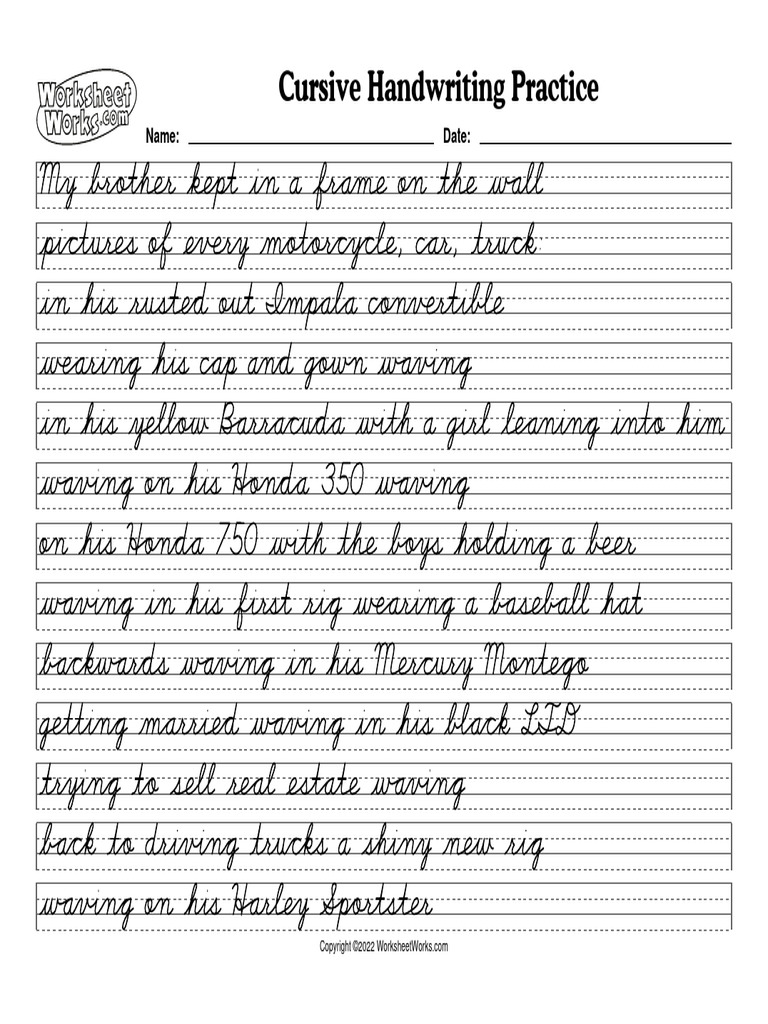 Worksheet
Works.com
Cursive Handwriting Practice
Name:
Date:
My brother kept in a frame on the wall
pictures of every motorcycle, car, truck:
in his rusted out Impala convertible
wearing his cap and gown waving
in his yellow Barracuda with a girl leaning into him
waving on his Honda 350 waving
on his Honda 750 with the boys holding a beer
waving in his first rig wearing a baseball hat
backwards waving in his Mercury Montego
getting married waving in his black LTD
trying to sell real estate waving
back to driving trucks a shiny new rig
waving on his Harley Sportster
Copyright ©2022 WorksheetWorks.com